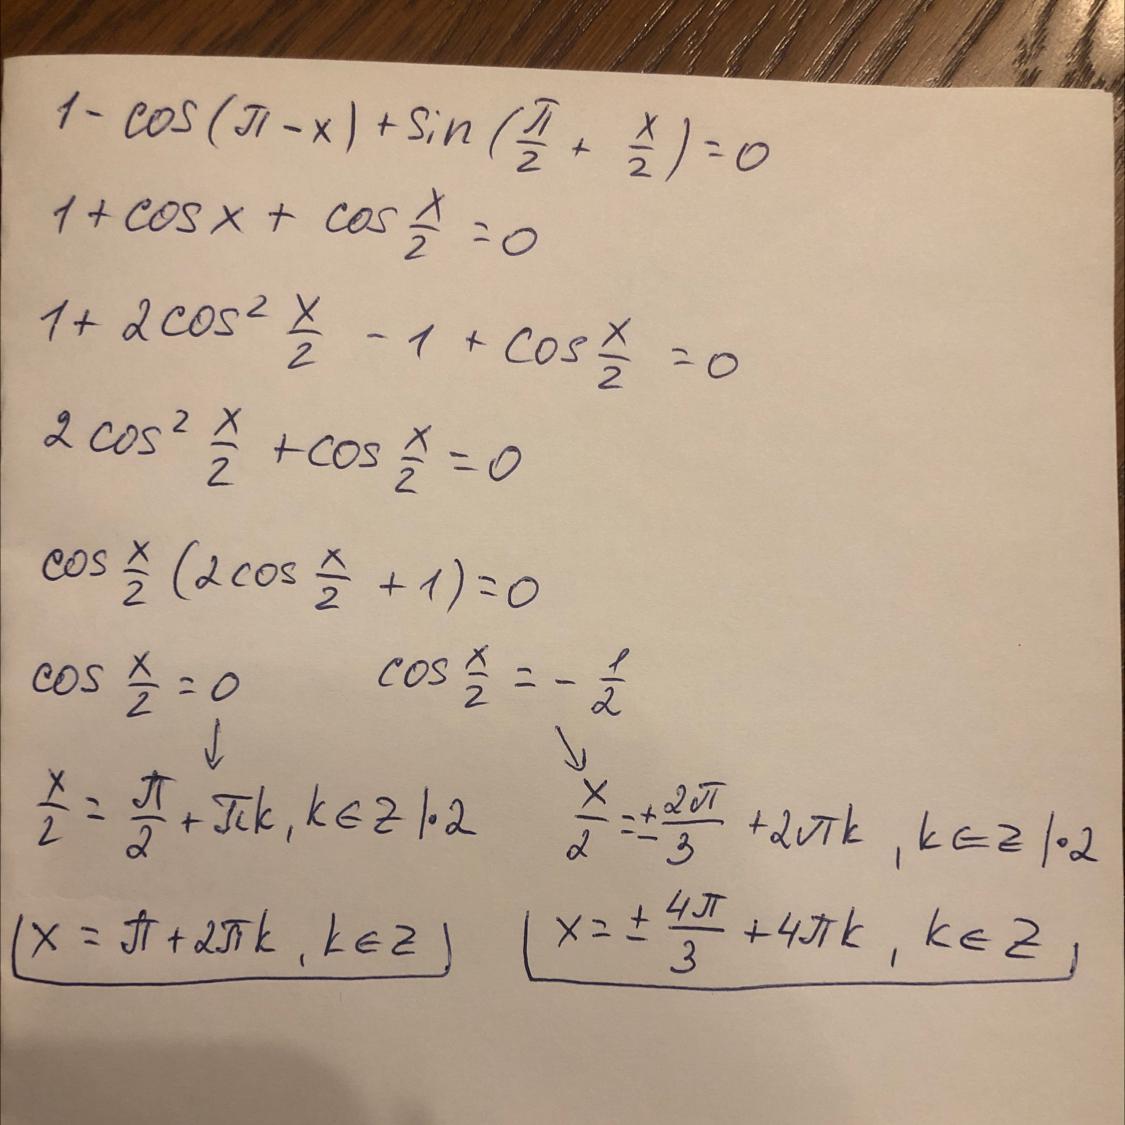 1 - cos(π - x) + sin(π/2 + x/2) = 0
1 + cos x + cos x/2 = 0
1 + 2cos² x/2 - 1 + cos x/2 = 0
2cos² x/2 + cos x/2 = 0
cos x/2 (2cos x/2 + 1) = 0
cos x/2 = 0 cos x/2 = - 1/2
↓ ↘
x/2 = π/2 + πk, k ∈ Z |·2 x/2 = ± 2π/3 + 2πk, k ∈ Z |·2
x = π + 2πk, k ∈ Z x = ± 4π/3 + 4πk, k ∈ Z